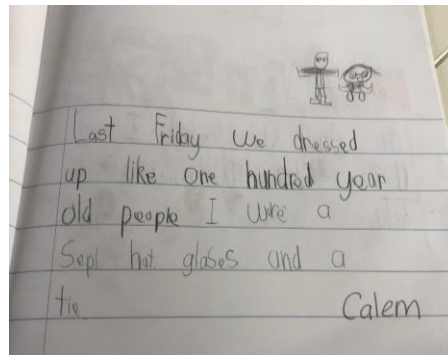 Last Friday we dressed
up like one hundred year
old people I wre a
Sepl hat glases and a
tie. Calem